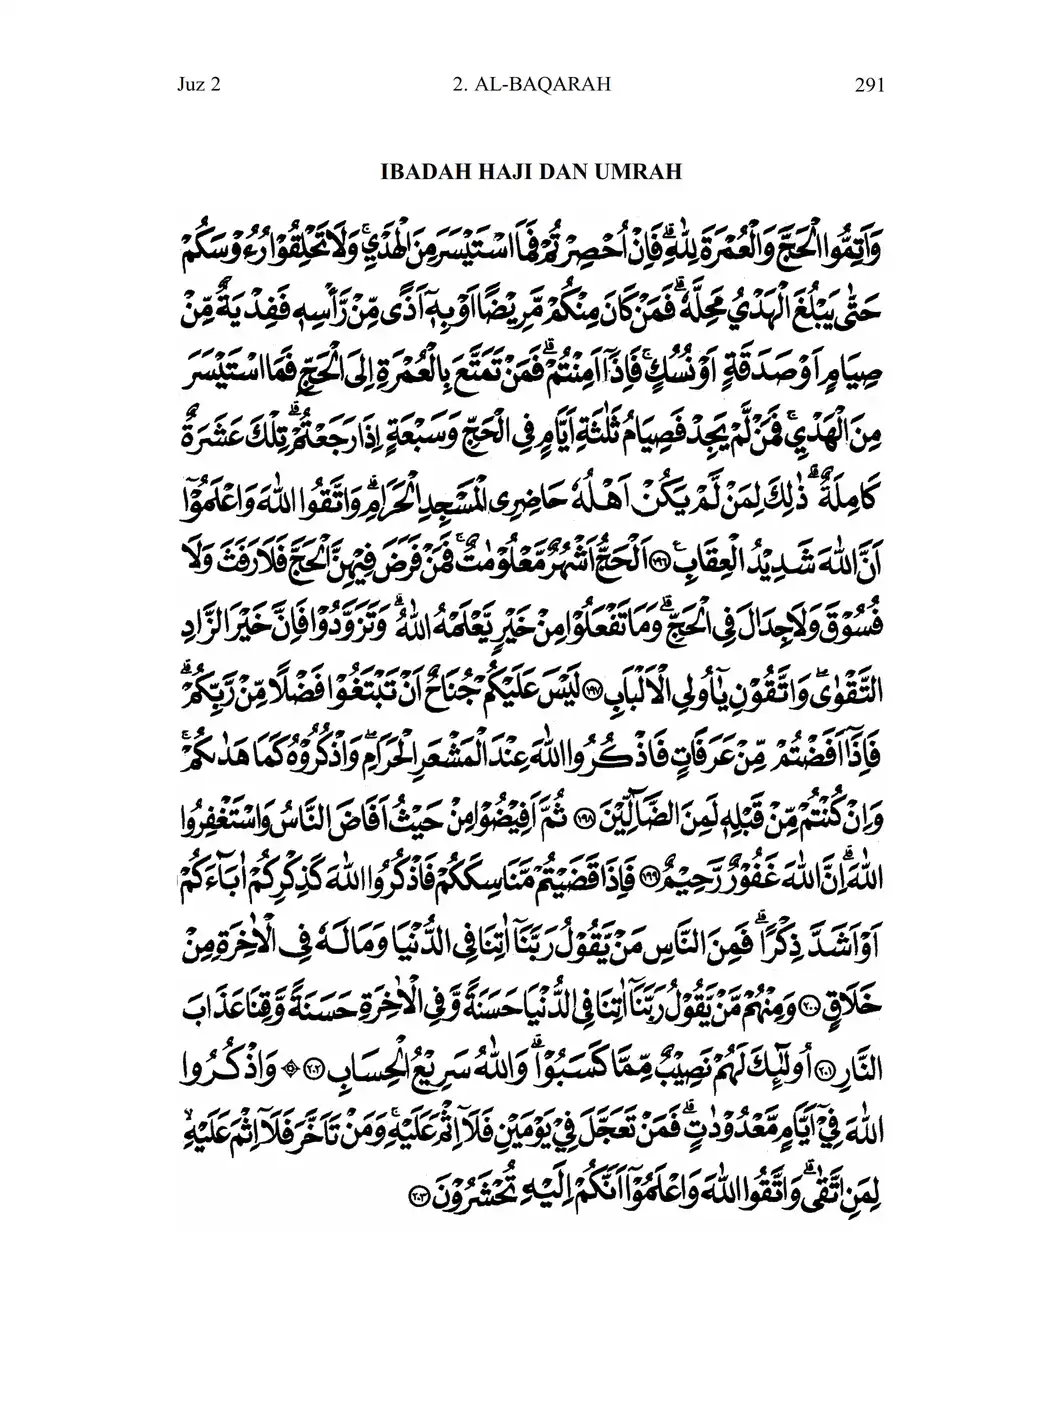 Juz 2 2. AL-BAQARAH 291
IBADAH HAJI DAN UMRAH
وَاَتِمُّوا الْحَجَّ وَالْعُمْرَةَ لِلّٰهِ ۗ فَاِنْ اُحْصِرْتُمْ فَمَا اسْتَيْسَرَ مِنَ الْهَدْيِ ۚ وَلَا تَحْلِقُوْا رُءُوْسَكُمْ
حَتّٰى يَبْلُغَ الْهَدْيُ مَحِلَّهٗ ۗ فَمَنْ كَانَ مِنْكُمْ مَّرِيْضًا اَوْ بِهٖٓ اَذًى مِّنْ رَّأْسِهٖ فَفِدْيَةٌ مِّنْ
صِيَامٍ اَوْ صَدَقَةٍ اَوْ نُسُكٍ ۚ فَاِذَآ اَمِنْتُمْ ۗ فَمَنْ تَمَتَّعَ بِالْعُمْرَةِ اِلَى الْحَجِّ فَمَا اسْتَيْسَرَ
مِنَ الْهَدْيِ ۚ فَمَنْ لَّمْ يَجِدْ فَصِيَامُ ثَلٰثَةِ اَيَّامٍ فِى الْحَجِّ وَسَبْعَةٍ اِذَا رَجَعْتُمْ ۗ تِلْكَ عَشَرَةٌ
كَامِلَةٌ ۗ ذٰلِكَ لِمَنْ لَّمْ يَكُنْ اَهْلُهٗ حَاضِرِى الْمَسْجِدِ الْحَرَامِ ۗ وَاتَّقُوا اللّٰهَ وَاعْلَمُوْٓا
اَنَّ اللّٰهَ شَدِيْدُ الْعِقَابِ ࣖ ۝١٩٦ اَلْحَجُّ اَشْهُرٌ مَّعْلُوْمٰتٌ ۚ فَمَنْ فَرَضَ فِيْهِنَّ الْحَجَّ فَلَا رَفَثَ وَلَا
فُسُوْقَ وَلَا جِدَالَ فِى الْحَجِّ ۗ وَمَا تَفْعَلُوْا مِنْ خَيْرٍ يَّعْلَمْهُ اللّٰهُ ۗ وَتَزَوَّدُوْا فَاِنَّ خَيْرَ الزَّادِ
التَّقْوٰى ۖ وَاتَّقُوْنِ يٰٓاُولِى الْاَلْبَابِ ۝١٩٧ لَيْسَ عَلَيْكُمْ جُنَاحٌ اَنْ تَبْتَغُوْا فَضْلًا مِّنْ رَّبِّكُمْ ۗ
فَاِذَآ اَفَضْتُمْ مِّنْ عَرَفَاتٍ فَاذْكُرُوا اللّٰهَ عِنْدَ الْمَشْعَرِ الْحَرَامِ ۖ وَاذْكُرُوْهُ كَمَا هَدٰىكُمْ ۚ
وَاِنْ كُنْتُمْ مِّنْ قَبْلِهٖ لَمِنَ الضَّاۤلِّيْنَ ۝١٩٨ ثُمَّ اَفِيْضُوْا مِنْ حَيْثُ اَفَاضَ النَّاسُ وَاسْتَغْفِرُوا
اللّٰهَ ۗ اِنَّ اللّٰهَ غَفُوْرٌ رَّحِيْمٌ ۝١٩٩ فَاِذَا قَضَيْتُمْ مَّنَاسِكَكُمْ فَاذْكُرُوا اللّٰهَ كَذِكْرِكُمْ اٰبَاۤءَكُمْ
اَوْ اَشَدَّ ذِكْرًا ۗ فَمِنَ النَّاسِ مَنْ يَّقُوْلُ رَبَّنَآ اٰتِنَا فِى الدُّنْيَا وَمَا لَهٗ فِى الْاٰخِرَةِ مِنْ
خَلَاقٍ ۝٢٠٠ وَمِنْهُمْ مَّنْ يَّقُوْلُ رَبَّنَآ اٰتِنَا فِى الدُّنْيَا حَسَنَةً وَّفِى الْاٰخِرَةِ حَسَنَةً وَّقِنَا عَذَابَ
النَّارِ ۝٢٠١ اُولٰۤىِٕكَ لَهُمْ نَصِيْبٌ مِّمَّا كَسَبُوْا ۗ وَاللّٰهُ سَرِيْعُ الْحِسَابِ ۝٢٠٢ ۞ وَاذْكُرُوا
اللّٰهَ فِيْٓ اَيَّامٍ مَّعْدُوْدٰتٍ ۗ فَمَنْ تَعَجَّلَ فِيْ يَوْمَيْنِ فَلَآ اِثْمَ عَلَيْهِ ۚ وَمَنْ تَاَخَّرَ فَلَآ اِثْمَ عَلَيْهِ ۙ
لِمَنِ اتَّقٰى ۗ وَاتَّقُوا اللّٰهَ وَاعْلَمُوْٓا اَنَّكُمْ اِلَيْهِ تُحْشَرُوْنَ ۝٢٠٣